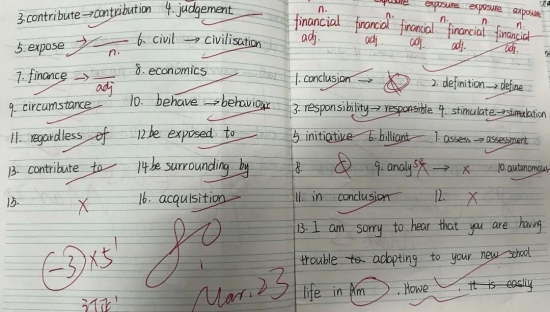 3. contribute → contribution 4. judgement
5. expose → n. 6. civil → civilisation
7. finance → adj 8. economics
9. circumstance 10. behave → behaviour
11. regardless of 12. be exposed to
13. contribute to 14. be surrounding by
15. x 16. acquisition
-3 x5'
80
Mar. 23
exposure exposure exposure exposure
n. n. n. n. n.
financial financial financial financial financial
adj. adj. adj. adj. adj.
1. conclusion → 2. definition → define
3. responsibility → responsible 4. stimulate → stimulation
5. initiative 6. billiant 7. assess → assessment
8. 9. analy → x 10. autonomous
11. in conclusion 12. x
13. I am sorry to hear that you are having
trouble to adapting to your new school
life in Am . Howe , it is easily